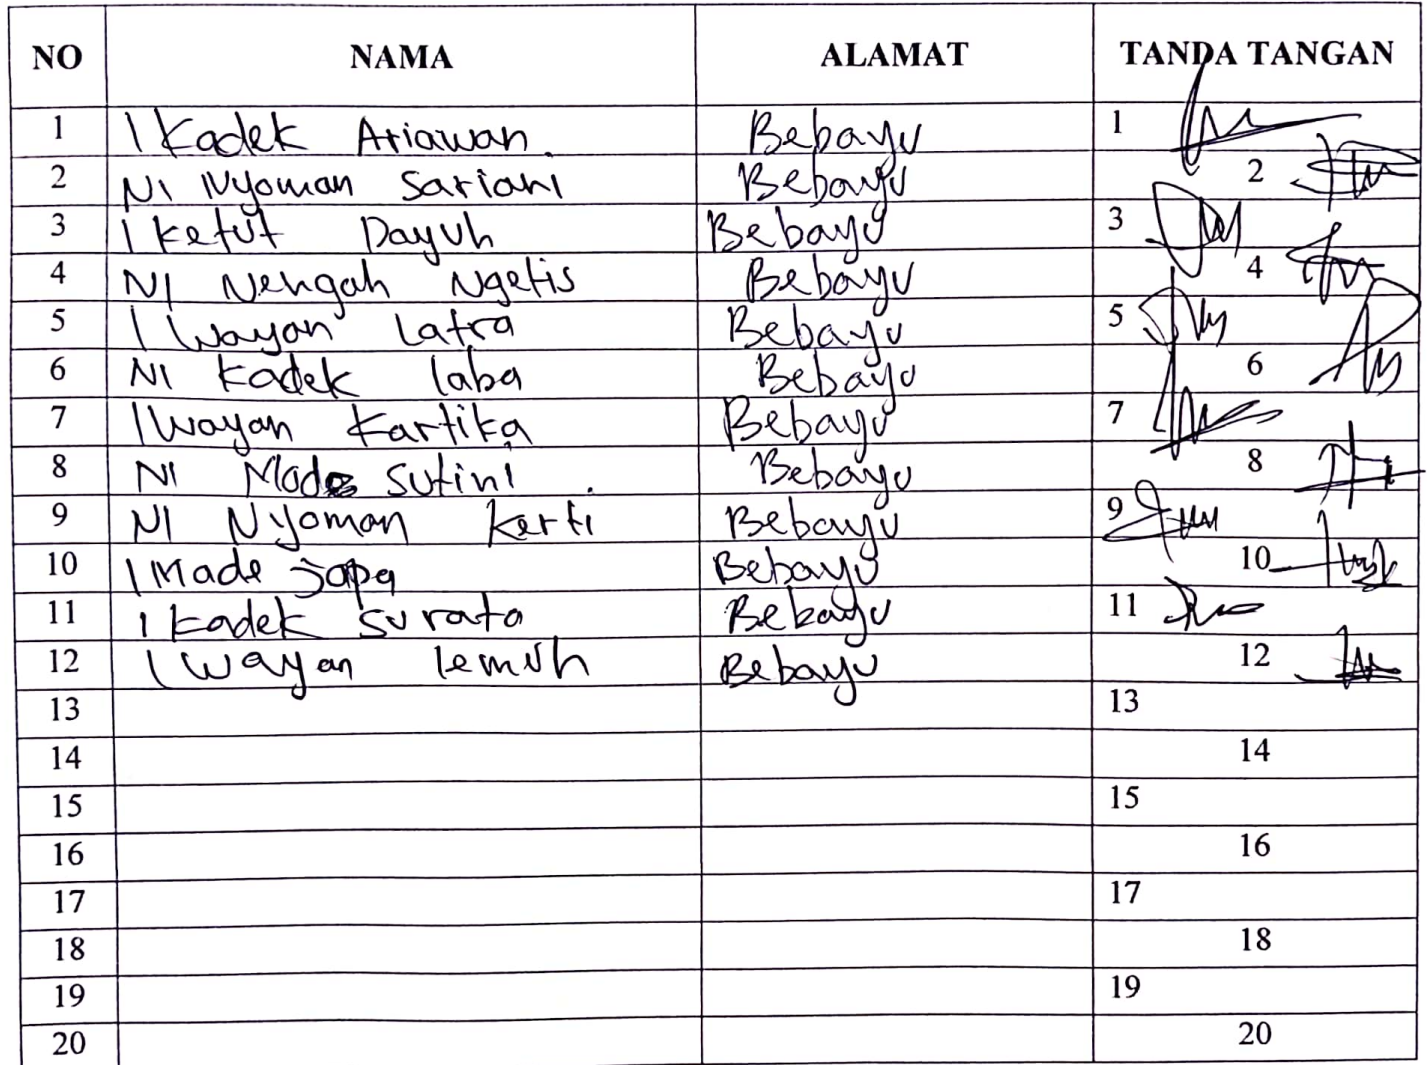 NO NAMA ALAMAT TANDA TANGAN
1 I Kadek Ariawan. Bebayu 1
2 NI Nyoman Sariani Bebayu 2
3 I Ketut Dayuh Bebayu 3
4 NI Nengah Ngetis Bebayu 4
5 I Wayan Latra Bebayu 5
6 NI Kadek laba Bebayu 6
7 I Wayan Kartika Bebayu 7
8 NI Made sutini. Bebayu 8
9 NI Nyoman Kerti Bebayu 9
10 I Made japa Bebayu 10
11 I Kadek surata Bebayu 11
12 I Wayan lemuh Bebayu 12
13 13
14 14
15 15
16 16
17 17
18 18
19 19
20 20